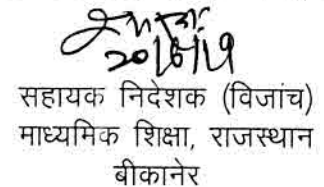 20/6/19
सहायक निदेशक (विजांच)
माध्यमिक शिक्षा, राजस्थान
बीकानेर